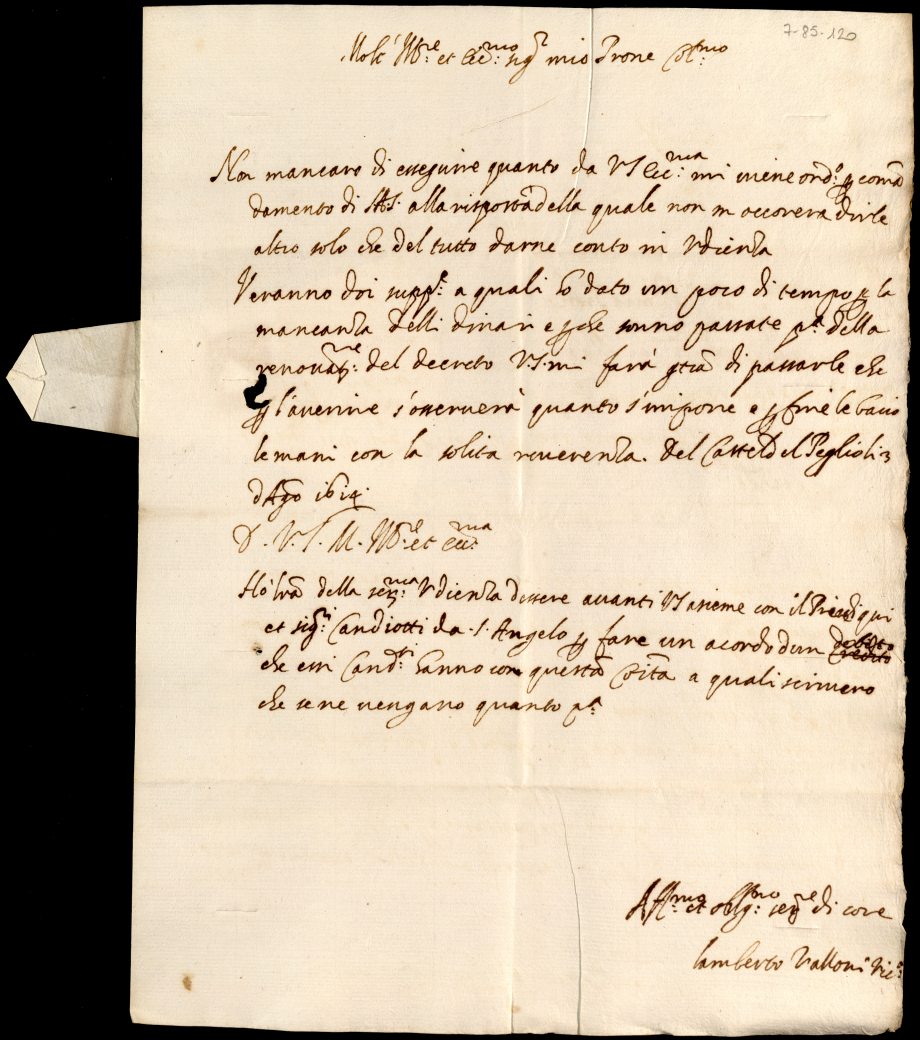 7-85-120
Molt' Ill.re et Ecc.mo sig.r mio Prone Oss.mo
Non mancaro di esseguire quanto da VS Ecc.ma mi viene ord.o p coman
damento di SAS. alla risposta della quale non m occorera dirle
altro solo che del tutto darne conto in Udienza
Veranno doi supp.e a quali ho dato un poco di tempo p la
mancanza delli dinari e p che sonno passate p.a della
renovat.ne del decreto V.S. mi fara gtia di passarle che
p l'avenire s'osservera quanto s'impone e p fine le bacio
le mani con la solita reverenza. Del Castel del Peglio li 3
d Ago 1614.
D. V. S. M. Ill.re et Ecc.ma
Hò lra della ser.ma Udienza dessere avanti VS assieme con il di qui
et sig.ri Candiotti da S. Angelo p fare un acordo d'un debito credito
che essi Cand.ti hanno con questa Cõita a quali scrivero
che se ne vengano quanto p.a
Aff.mo et oblig.mo ser.re di core
Lamberto Valloni Vic.o